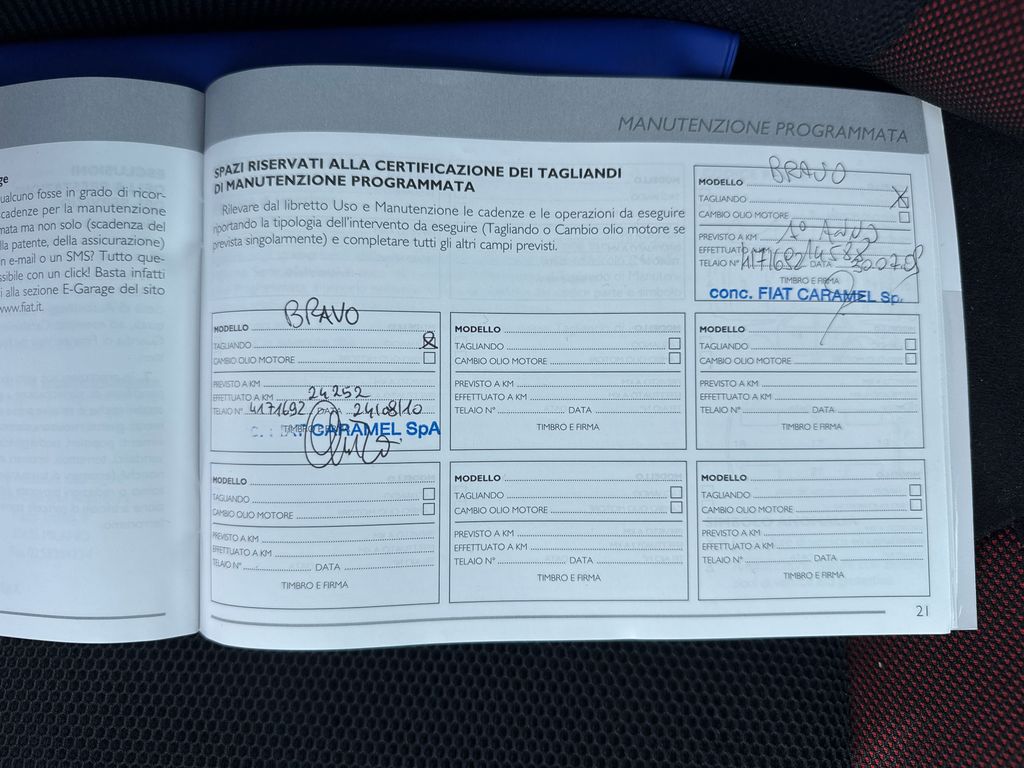 ge
ualcuno fosse in grado di ricor-
cadenze per la manutenzione
mata ma non solo (scadenza del
lla patente, della assicurazione)
n e-mail o un SMS? Tutto que-
ssibile con un click! Basta infatti
i alla sezione E-Garage del sito
www.fiat.it.
MANUTENZIONE PROGRAMMATA
SPAZI RISERVATI ALLA CERTIFICAZIONE DEI TAGLIANDI
DI MANUTENZIONE PROGRAMMATA
Rilevare dal libretto Uso e Manutenzione le cadenze e le operazioni da eseguire
riportando la tipologia dell'intervento da eseguire (Tagliando o Cambio olio motore se
prevista singolarmente) e completare tutti gli altri campi previsti.
MODELLO BRAVO
TAGLIANDO X
CAMBIO OLIO MOTORE
PREVISTO A KM 1° ANNO
EFFETTUATO A KM
TELAIO N° 4171692 DATA
TIMBRO E FIRMA
conc. FIAT CARAMEL Sp
MODELLO BRAVO
TAGLIANDO X
CAMBIO OLIO MOTORE
PREVISTO A KM
EFFETTUATO A KM 24252
TELAIO N° 4171692 DATA 24/08/10
TIMBRO E
CARAMEL SpA
MODELLO
TAGLIANDO
CAMBIO OLIO MOTORE
PREVISTO A KM
EFFETTUATO A KM
TELAIO N° DATA
TIMBRO E FIRMA
MODELLO
TAGLIANDO
CAMBIO OLIO MOTORE
PREVISTO A KM
EFFETTUATO A KM
TELAIO N° DATA
TIMBRO E FIRMA
MODELLO
TAGLIANDO
CAMBIO OLIO MOTORE
PREVISTO A KM
EFFETTUATO A KM
TELAIO N° DATA
TIMBRO E FIRMA
MODELLO
TAGLIANDO
CAMBIO OLIO MOTORE
PREVISTO A KM
EFFETTUATO A KM
TELAIO N° DATA
TIMBRO E FIRMA
MODELLO
TAGLIANDO
CAMBIO OLIO MOTORE
PREVISTO A KM
EFFETTUATO A KM
TELAIO N° DATA
TIMBRO E FIRMA
21